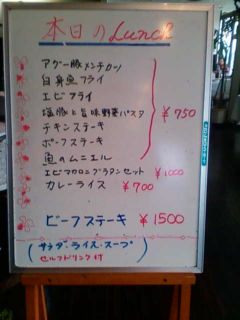 本日のLunch
アグー豚メンチカツ
白身魚フライ
エビフライ
塩豚と旨味野菜パスタ ¥750
チキンステーキ
ポークステーキ
魚のムニエル
エビマカロニグラタンセット ¥1000
カレーライス ¥700
ビーフステーキ ¥1500
(サラダ・ライス・スープ)
セルフドリンク付